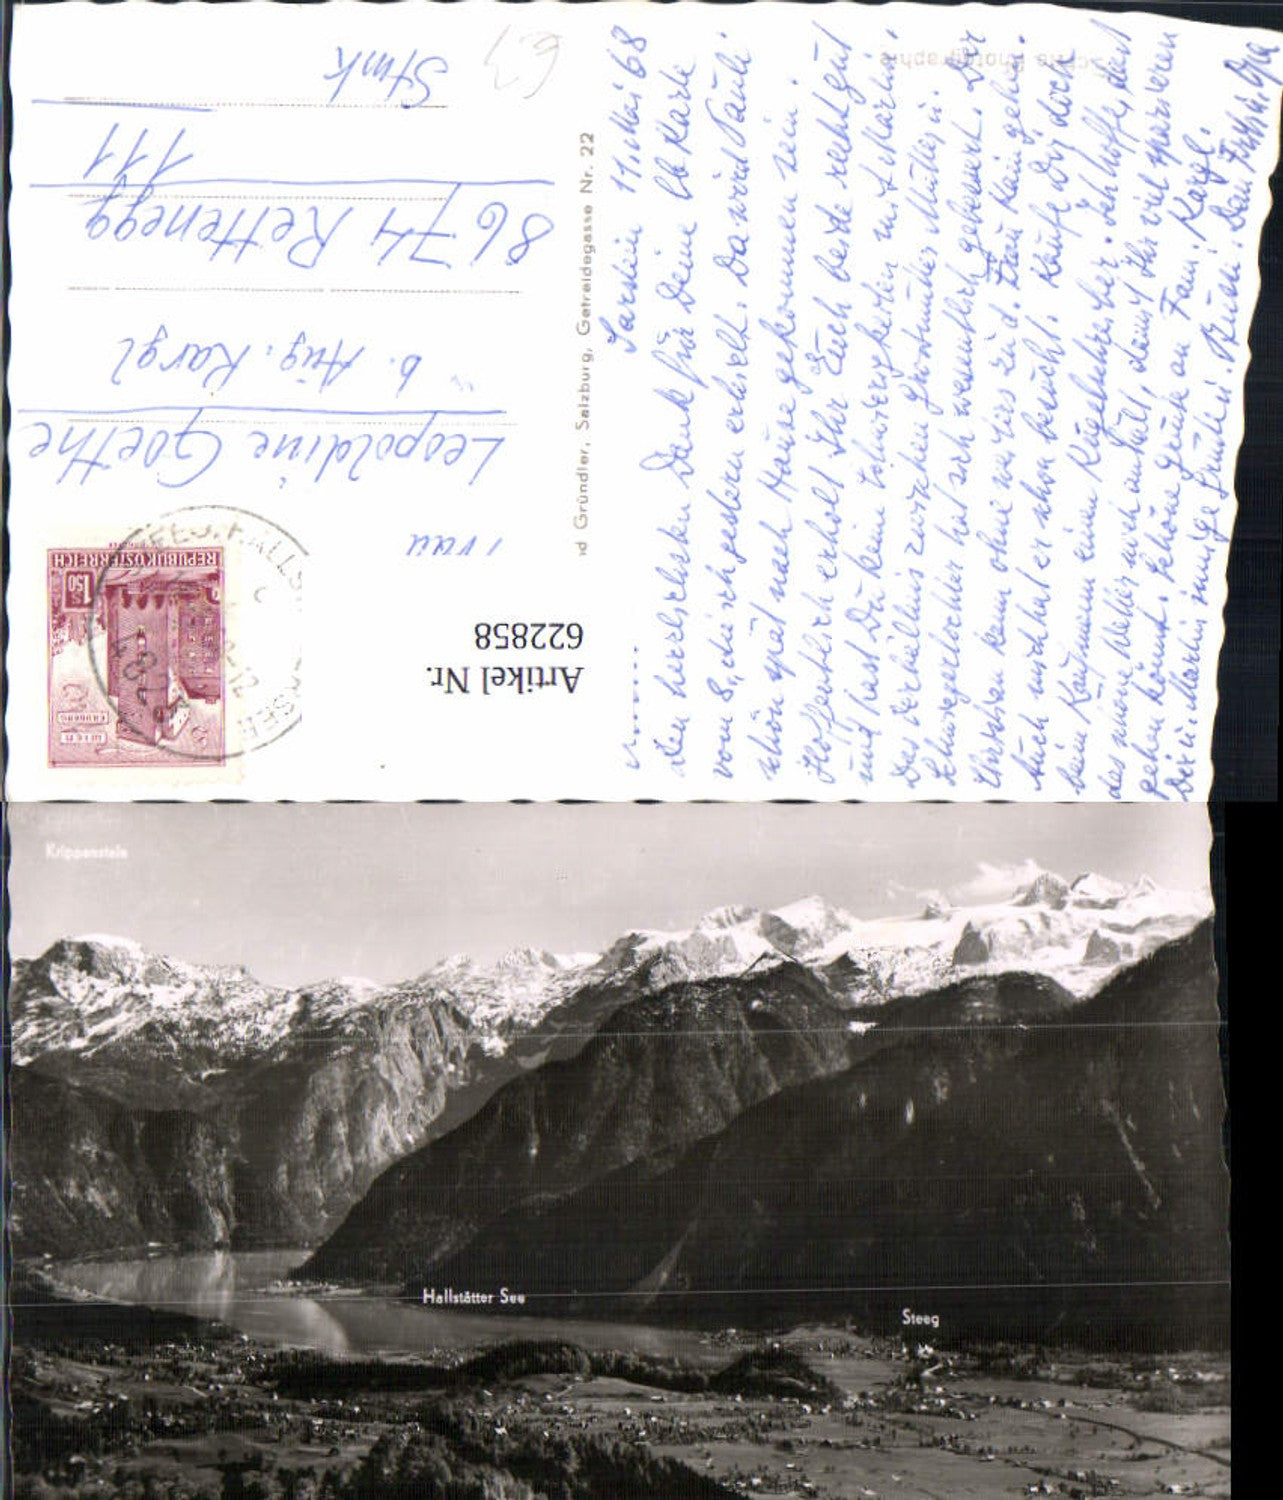 Sarstein 11. Mai 68
Den herzlichsten Dank für Deine lb Karte
vom 8., die ich gestern erhielt. Da wird Pauli
schön spät nach Hause gekommen sein.
Hoffentlich erholt Ihr Euch beide recht gut
und hast Du keine Schwierigkeiten mit
Das Verhältnis zwischen Großmutter Mutter u.
Schwiegertochter hat sich wesentlich gebessert. Der
kann ohne weiters zu d. Frau Klein gehen.
Auch mich hat er schon besucht. Kaufe Dir doch
beim Kaufmann einen Kugelschreiber. Ich hoffe, dass
das schöne Wetter noch anhält, damit Ihr viel spazieren
gehen könnt. Schöne Grüße an Fam. Kargl.
Dir u. Martin innige Grüße u. Bussi.
Echte Photographie
nd Gründler, Salzburg, Getreidegasse Nr. 22
REPUBLIK ÖSTERREICH
1.50
WIEN
ERDBERG
Frau
Leopoldine Goethe
b. Aug. Kargl
8674 Rettenegg
111
Stmk
Artikel Nr.
622858
Krippenstein
Hallstätter See
Steeg